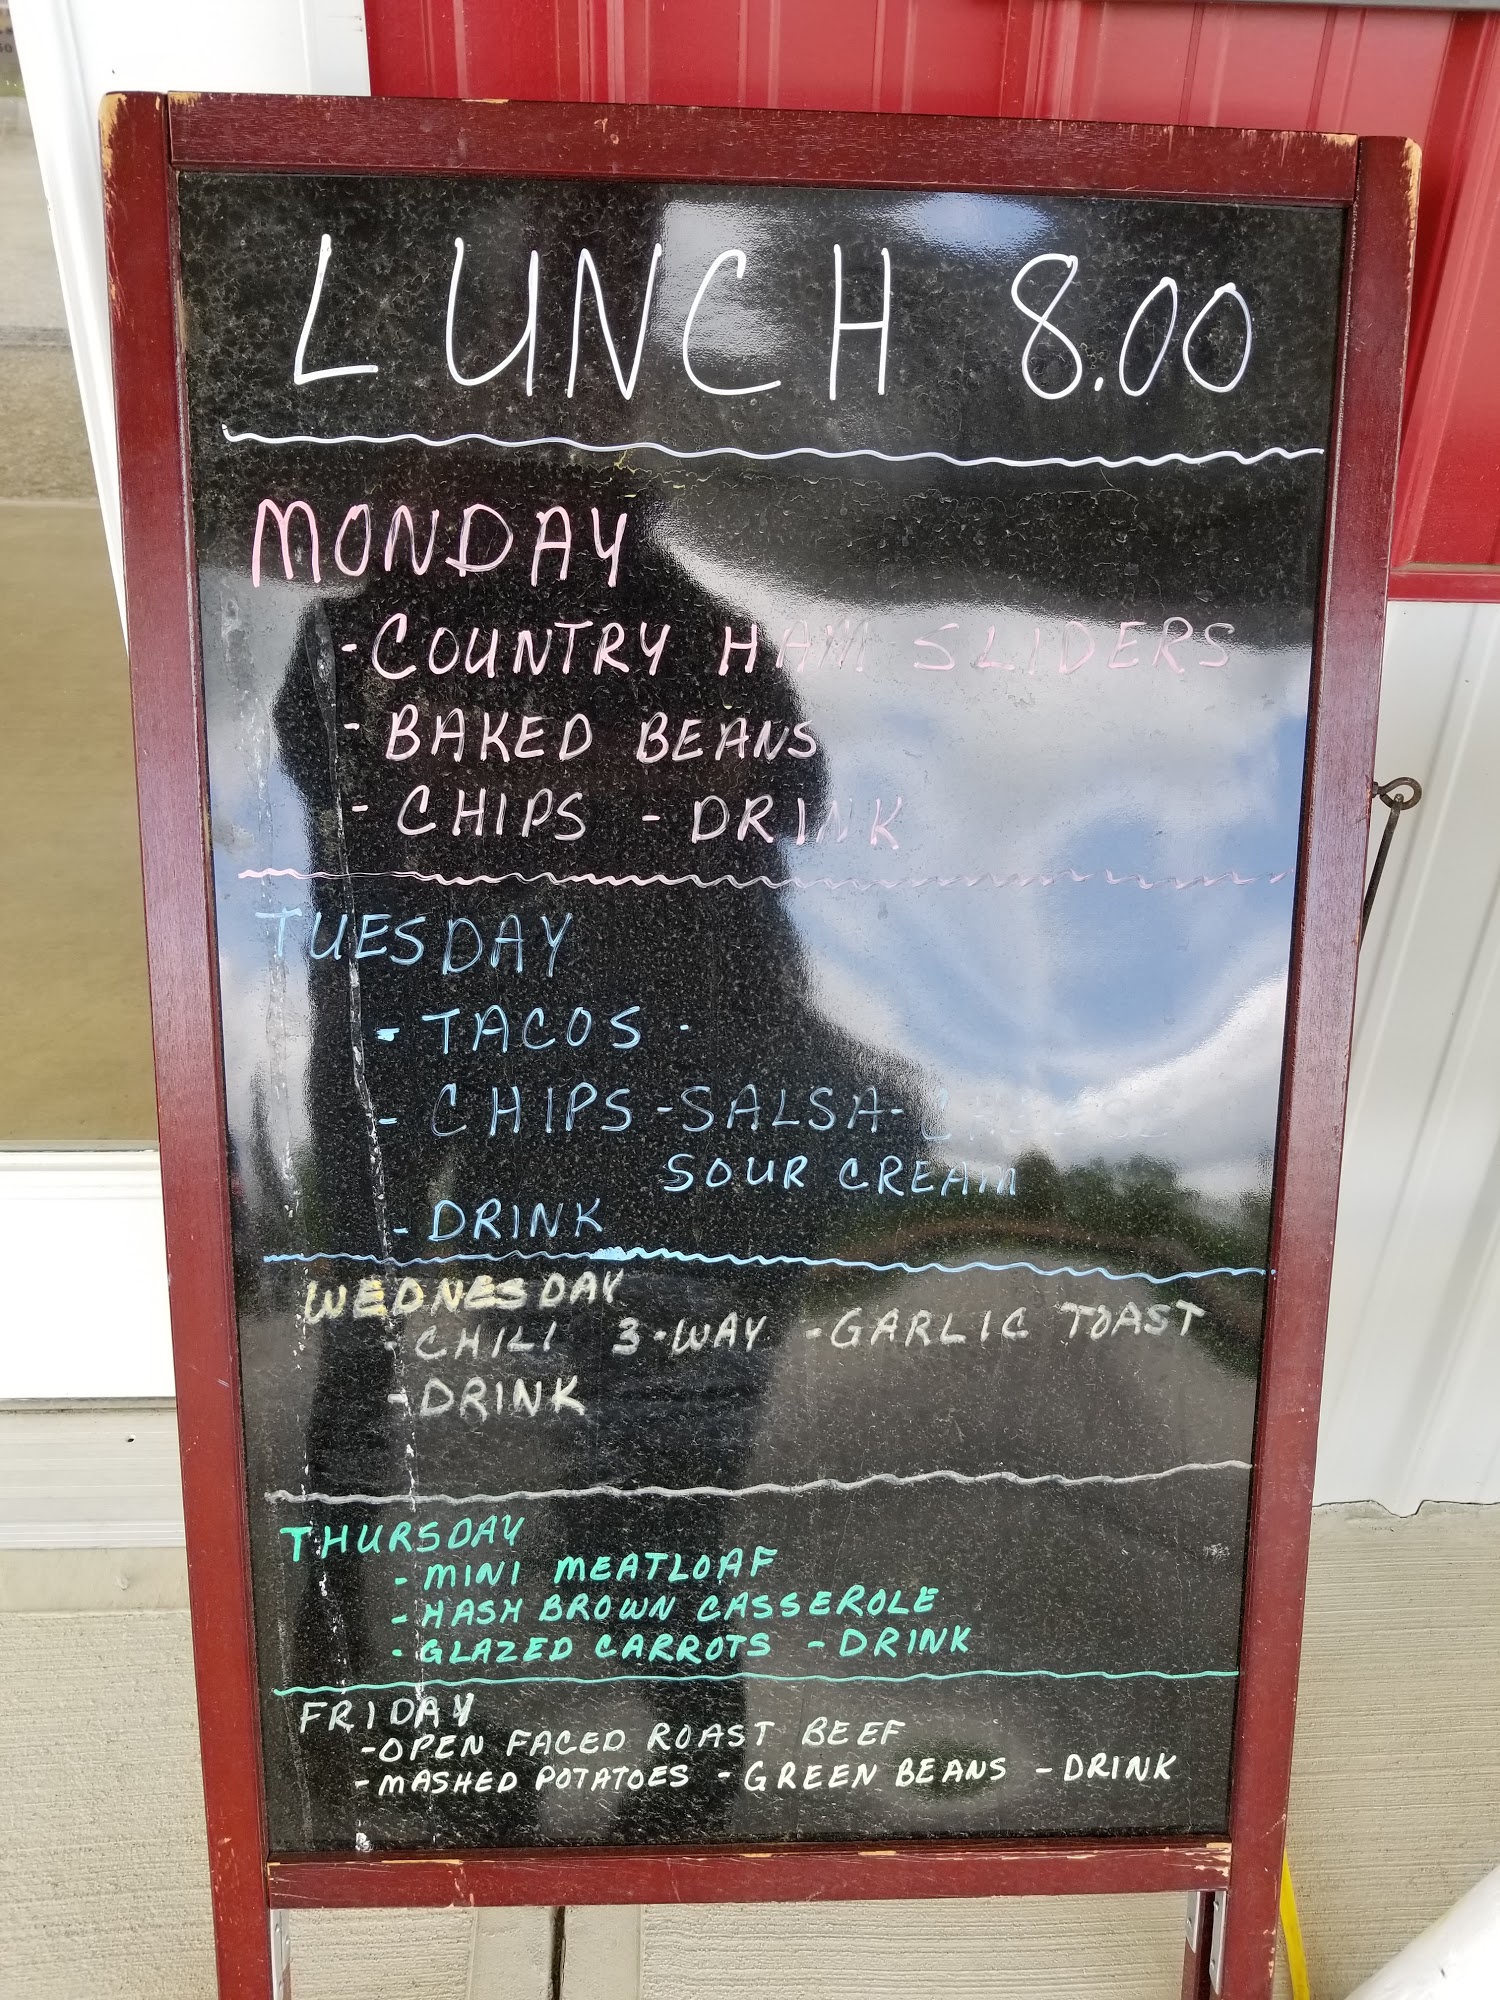 LUNCH 8.00
MONDAY
- COUNTRY HAM SLIDERS
- BAKED BEANS
- CHIPS - DRINK
TUESDAY
- TACOS -
- CHIPS - SALSA - CHEESE
SOUR CREAM
- DRINK
WEDNESDAY
- CHILI 3-WAY - GARLIC TOAST
- DRINK
THURSDAY
- MINI MEATLOAF
- HASH BROWN CASSEROLE
- GLAZED CARROTS - DRINK
FRIDAY
- OPEN FACED ROAST BEEF
- MASHED POTATOES - GREEN BEANS - DRINK